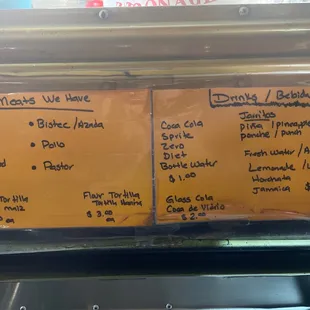 Meats We Have
• Bistec/Azada
• Pollo
• Pastor
Tortilla
maiz
Flour Tortilla
$3.00
Drinks / Bebida
Coca Cola
Sprite
Zero
Diet
Bottle Water
$1.00
Glass Cola
Coca de Vidrio
$2.00
Jarritos
piña/pineapple
ponche / punch
Fresh Water /A
Lemonade /L
Horchata
Jamaica $